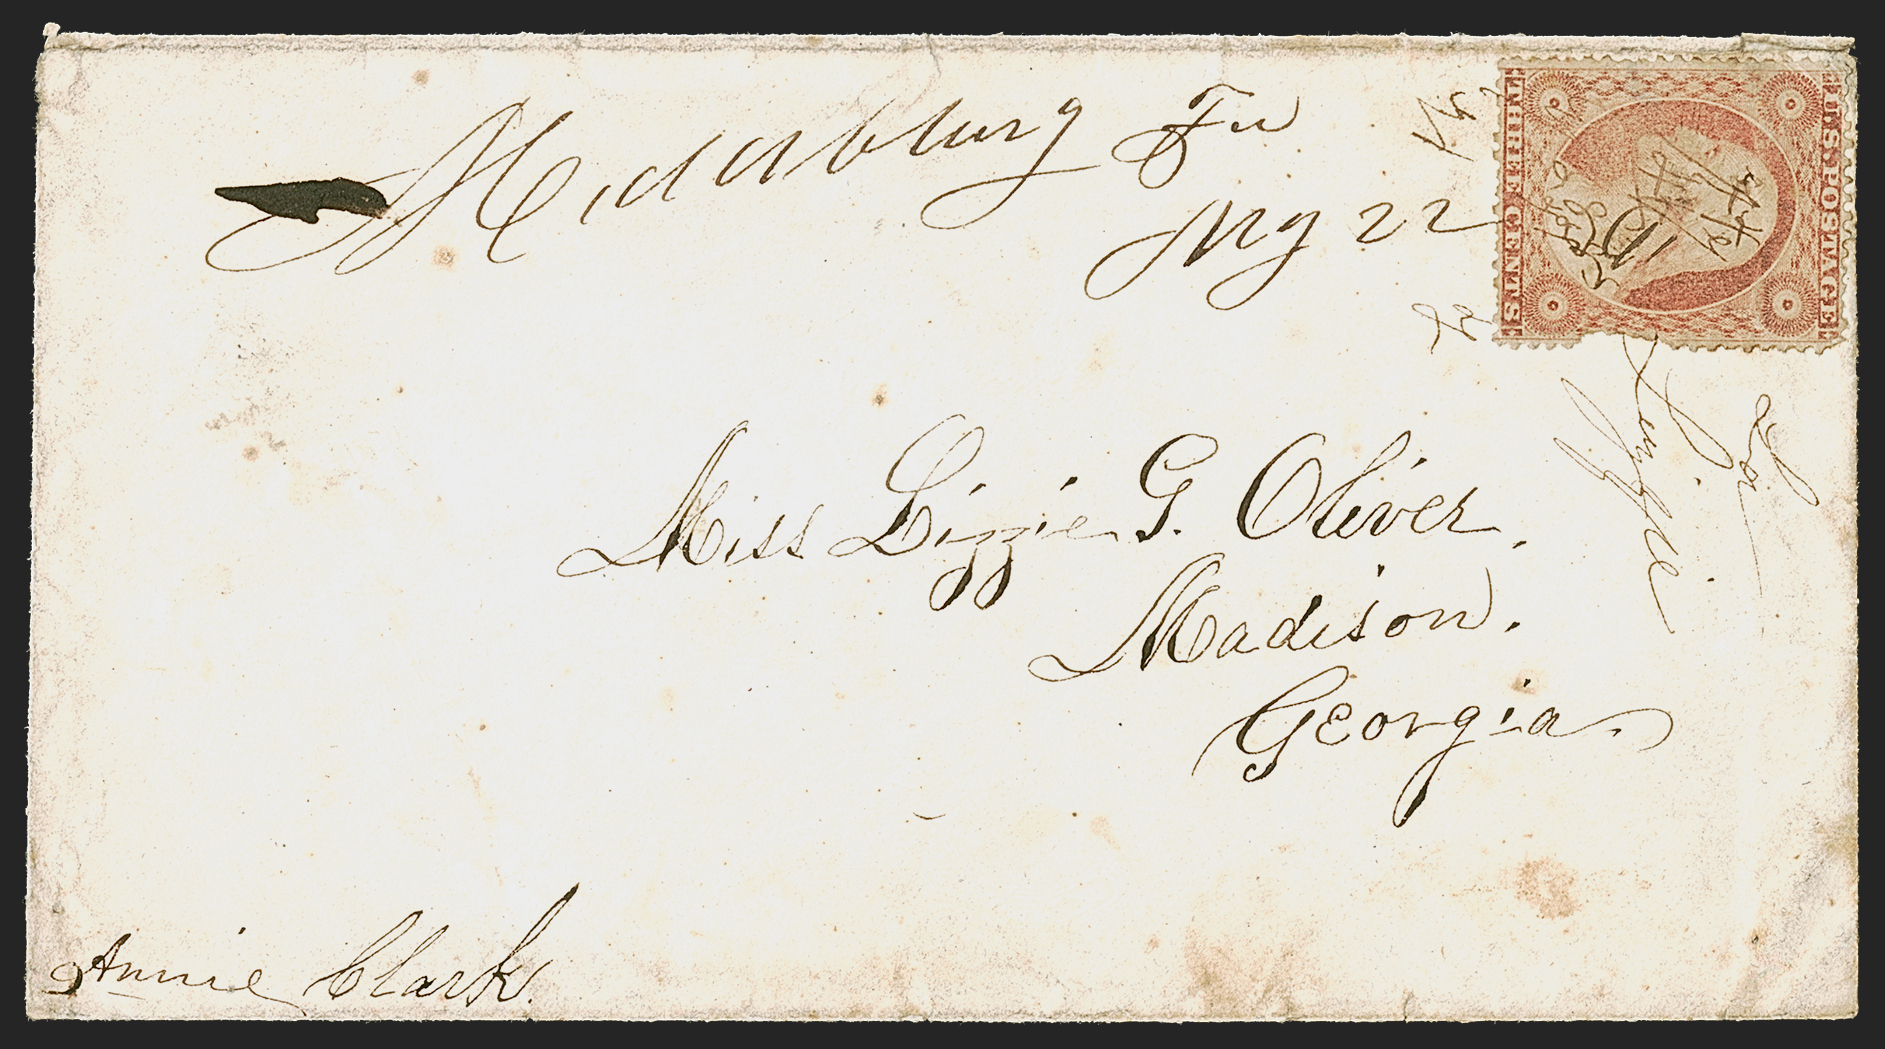 Middleburg Fla
My 22
U.S. POSTAGE
THREE CENTS
Miss Lizzie G. Oliver.
Madison.
Georgia.
Lizzie
Annie Clark.